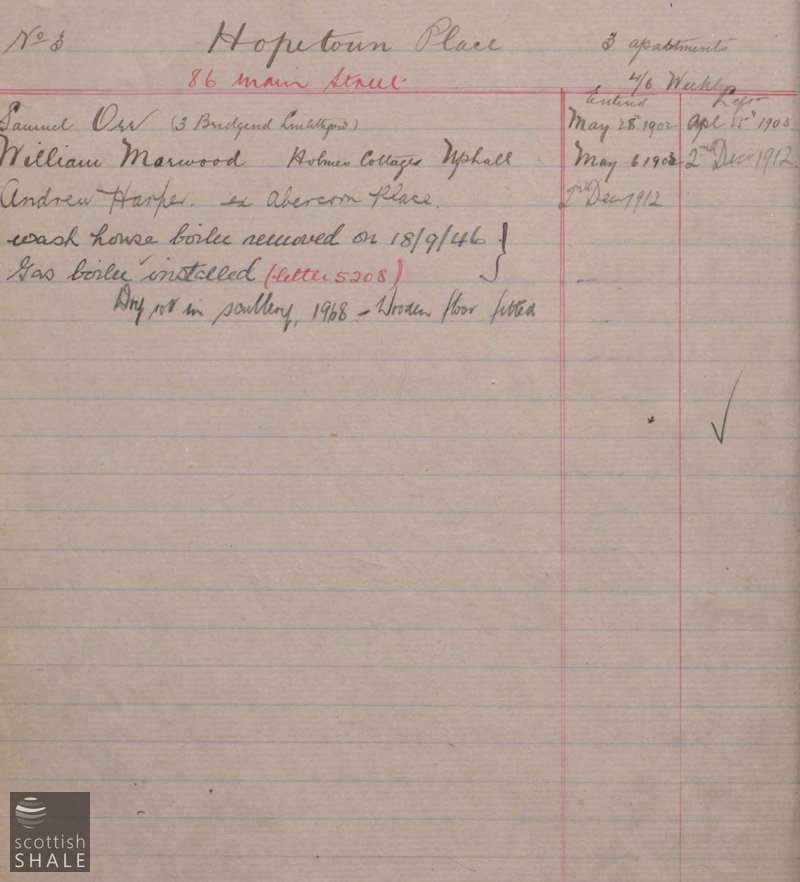 No 3 Hopetoun Place 3 apartments
86 Main Street 4/6 Weekly
Entered Left
Samuel Orr (3 Bridgend Linlithgow) May 28 1902 Apl 15th 1903
William Marwood Holmes Cottages Uphall May 6 1903 2nd Decr 1912
Andrew Harper. ex Abercorn Place. 2nd Decr 1912
wash house boiler removed on 18/9/46 }
Gas boiler installed (letter 5208)
Dry rot in scullery, 1968 - Wooden floor fitted
scottish
SHALE